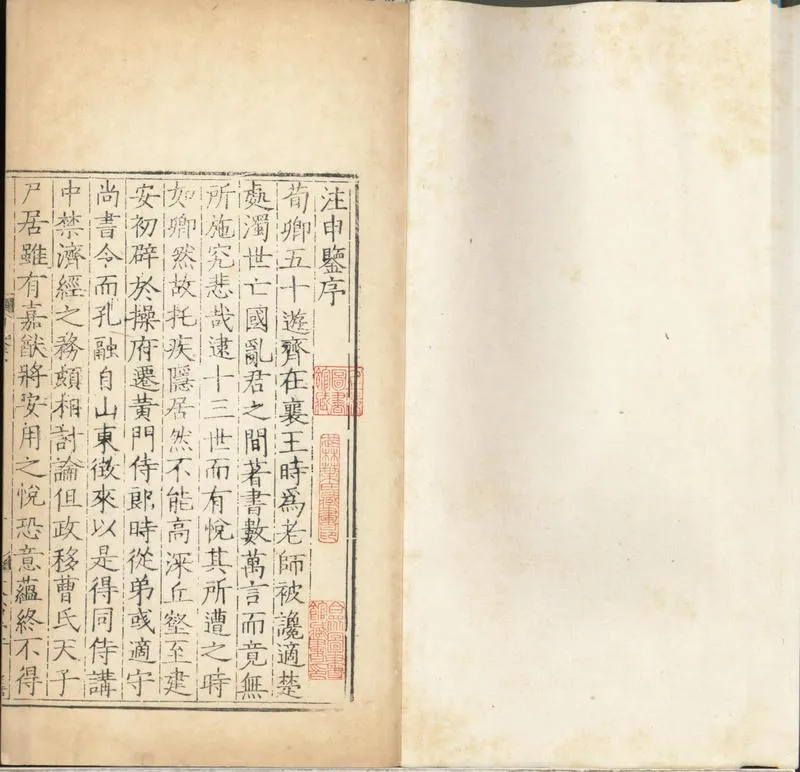 注申鑒序
荀卿五十遊齊在襄王時為老師被讒適楚
處濁世亡國亂君之間著書數萬言而竟無
所施究悲哉逮十三世而有悅其所遭之時
如卿然故托疾隱居然不能高深丘壑至建
安初辟於操府遷黃門侍郎時從弟彧適守
尚書令而孔融自山東徵來以是得同侍講
中禁濟經之務頗相討論但政移曹氏天子
尸居雖有嘉猷將安用之悅恐意蘊終不得